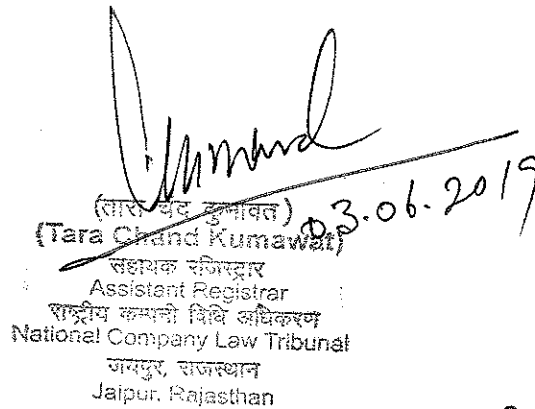 (तारा चंद कुमावत)
(Tara Chand Kumawat)
03.06.2019
सहायक रजिस्ट्रार
Assistant Registrar
राष्ट्रीय कम्पनी विधि अधिकरण
National Company Law Tribunal
जयपुर, राजस्थान
Jaipur, Rajasthan